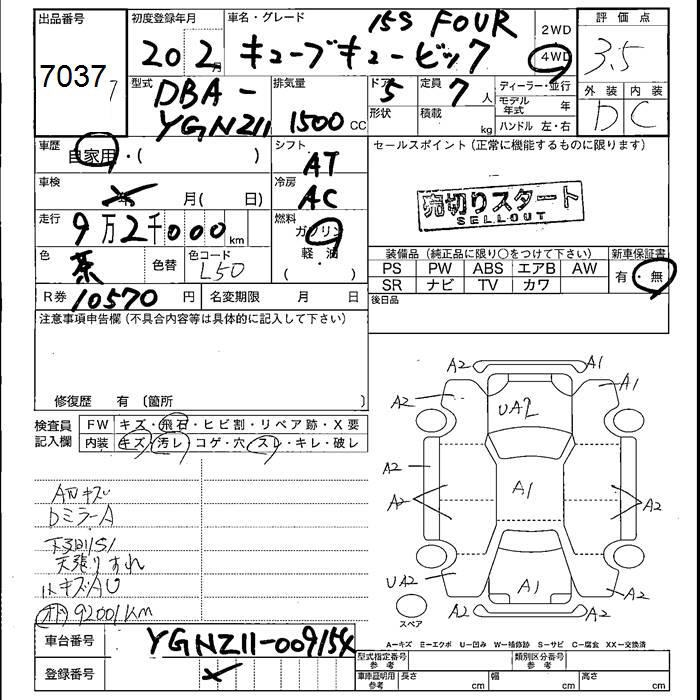 出品番号 初度登録年月 車名・グレード 15S FOUR 2WD 評価点
7037 20 2月 キューブキュービック 4WD 3.5
型式 排気量 ドア 定員 ディーラー・並行 外装 内装
DBA- 1500CC 5 7人 モデル年式 年 D C
YGNZ11 形状 積載 kg ハンドル 左・右
車歴 シフト セールスポイント(正常に機能するものに限ります)
自家用・( ) AT
車検 年 月( 日) 冷房 AC
売切りスタート
SELLOUT
走行 9万2千000km 燃料 ガソリン
軽・油
( )
色 茶 色替 色コード L50
装備品(純正品に限り○をつけて下さい) 新車保証書
PS PW ABS エアB AW 有・無
SR ナビ TV カワ
R券 10570円 名変期限 月 日 後日品
注意事項申告欄(不具合内容等は具体的に記入して下さい)
修復歴 有 〔箇所
検査員 FW キズ・飛石・ヒビ割・リペア跡・X要
記入欄 内装 キズ・汚レ・コゲ・穴・スレ・キレ・破レ
A2 A1
A2 UA2 A1
A2
A2 A1 A2
UA2 A1 A2
A2 A2
スペア
キズ
DミラーA
天張りすれ
キズAU
92001km
A=キズ E=エクボ U=凹み W=補修跡 S=サビ C=腐食 XX=交換済
車台番号 YGNZ11-009154
登録番号
型式指定番号 参考 類別区分番号 参考
車庫証明用 参考 長さ cm 幅 cm 高さ cm